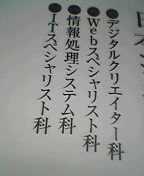 ●デジタルクリエイター科
●Webスペシャリスト科
●情報処理システム科
●ITスペシャリスト科